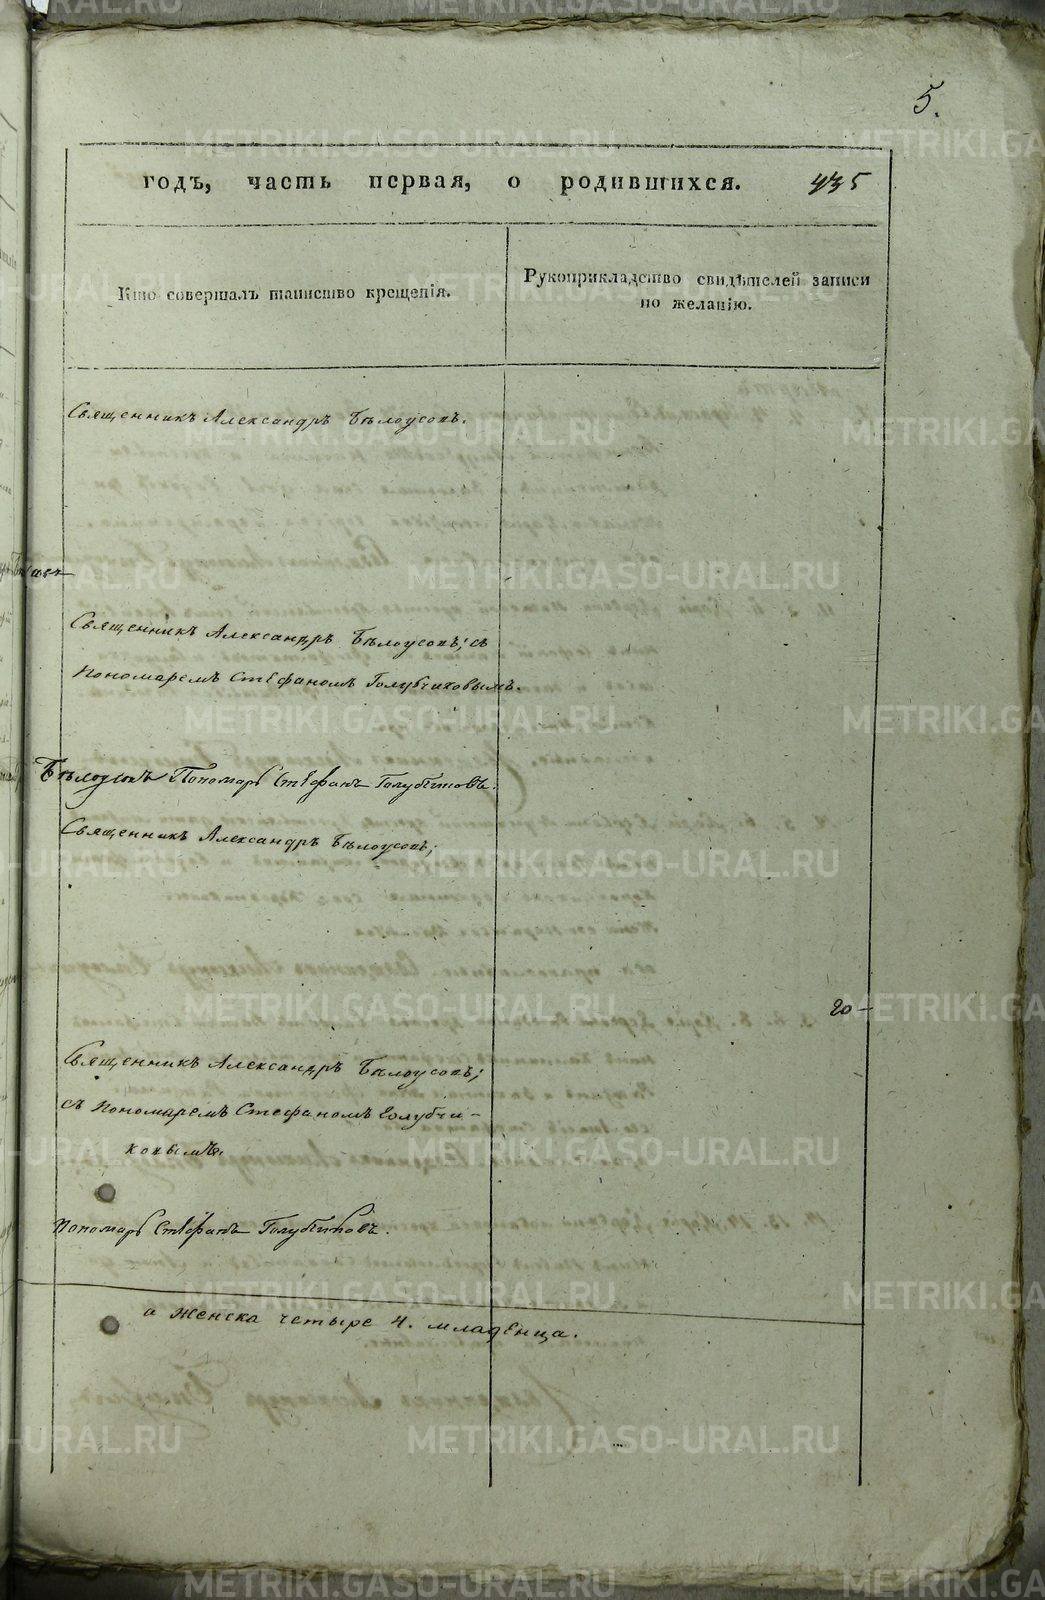 5.
годъ, часть первая, о родившихся. 435
Кто совершалъ таинство крещенія.
Рукоприкладство свидѣтелей записи
по желанію.
Священникъ Александръ Бѣлоусовъ.
Священникъ Александръ Бѣлоусовъ; съ
Пономаремъ Стефаномъ Голубчиковымъ.
Бѣлоусовъ Пономарь Стефанъ Голубчиковъ.
Священникъ Александръ Бѣлоусовъ;
20-
Священникъ Александръ Бѣлоусовъ;
съ Пономаремъ Стефаномъ Голубчи-
ковымъ.
Пономарь Стефанъ Голубчиковъ.
а женска четыре 4. младенца.
METRIKI.GASO-URAL.RU